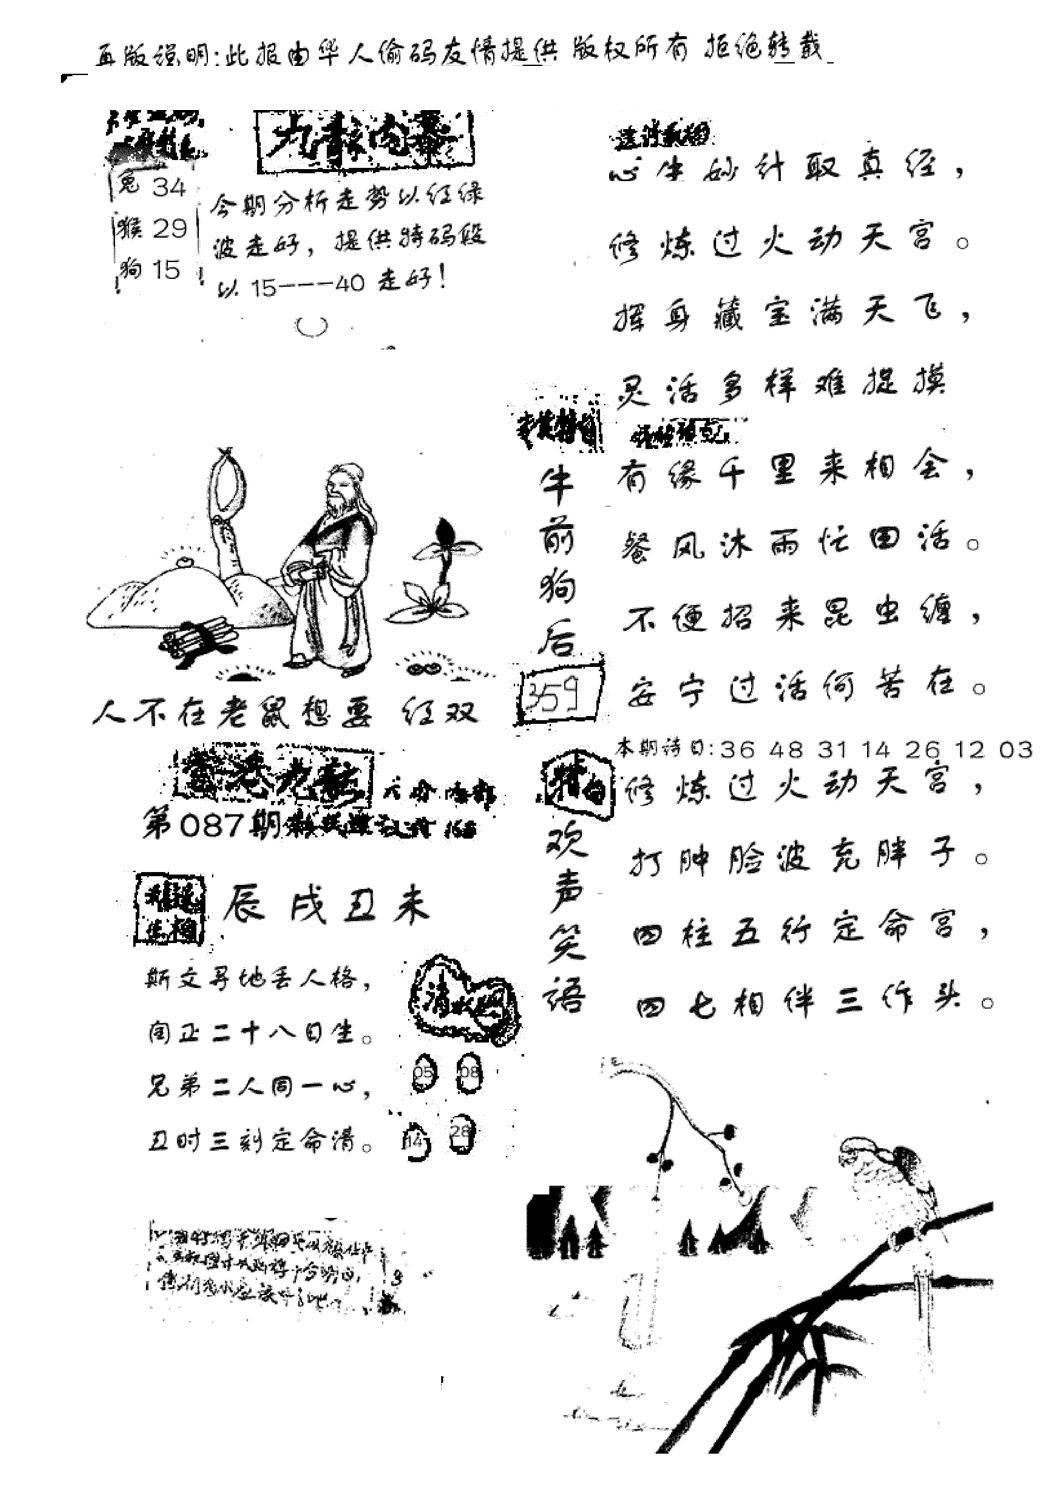 再版说明:此报由华人偷码友情提供 版权所有 拒绝转载
九龍内幕
兔 34
猴 29
狗 15
今期分析走势以红绿
波走好，提供特码段
以 15---40 走好!
心生妙计取真经，
修炼过火动天宫。
挥身藏宝满天飞，
灵活多样难捉摸
有缘千里来相会，
餐风沐雨忙回活。
不便招来昆虫缠，
安宁过活何苦在。
牛前狗后
359
人不在老鼠想要 红双
第087期
辰戌丑未
斯文寻地丢人格，
闰正二十八日生。
兄弟二人同一心，
丑时三刻定命清。
05 08
14 28
本期诗曰:36 48 31 14 26 12 03
修炼过火动天宫，
打肿脸波充胖子。
四柱五行定命宫，
四七相伴三作头。
欢声笑语